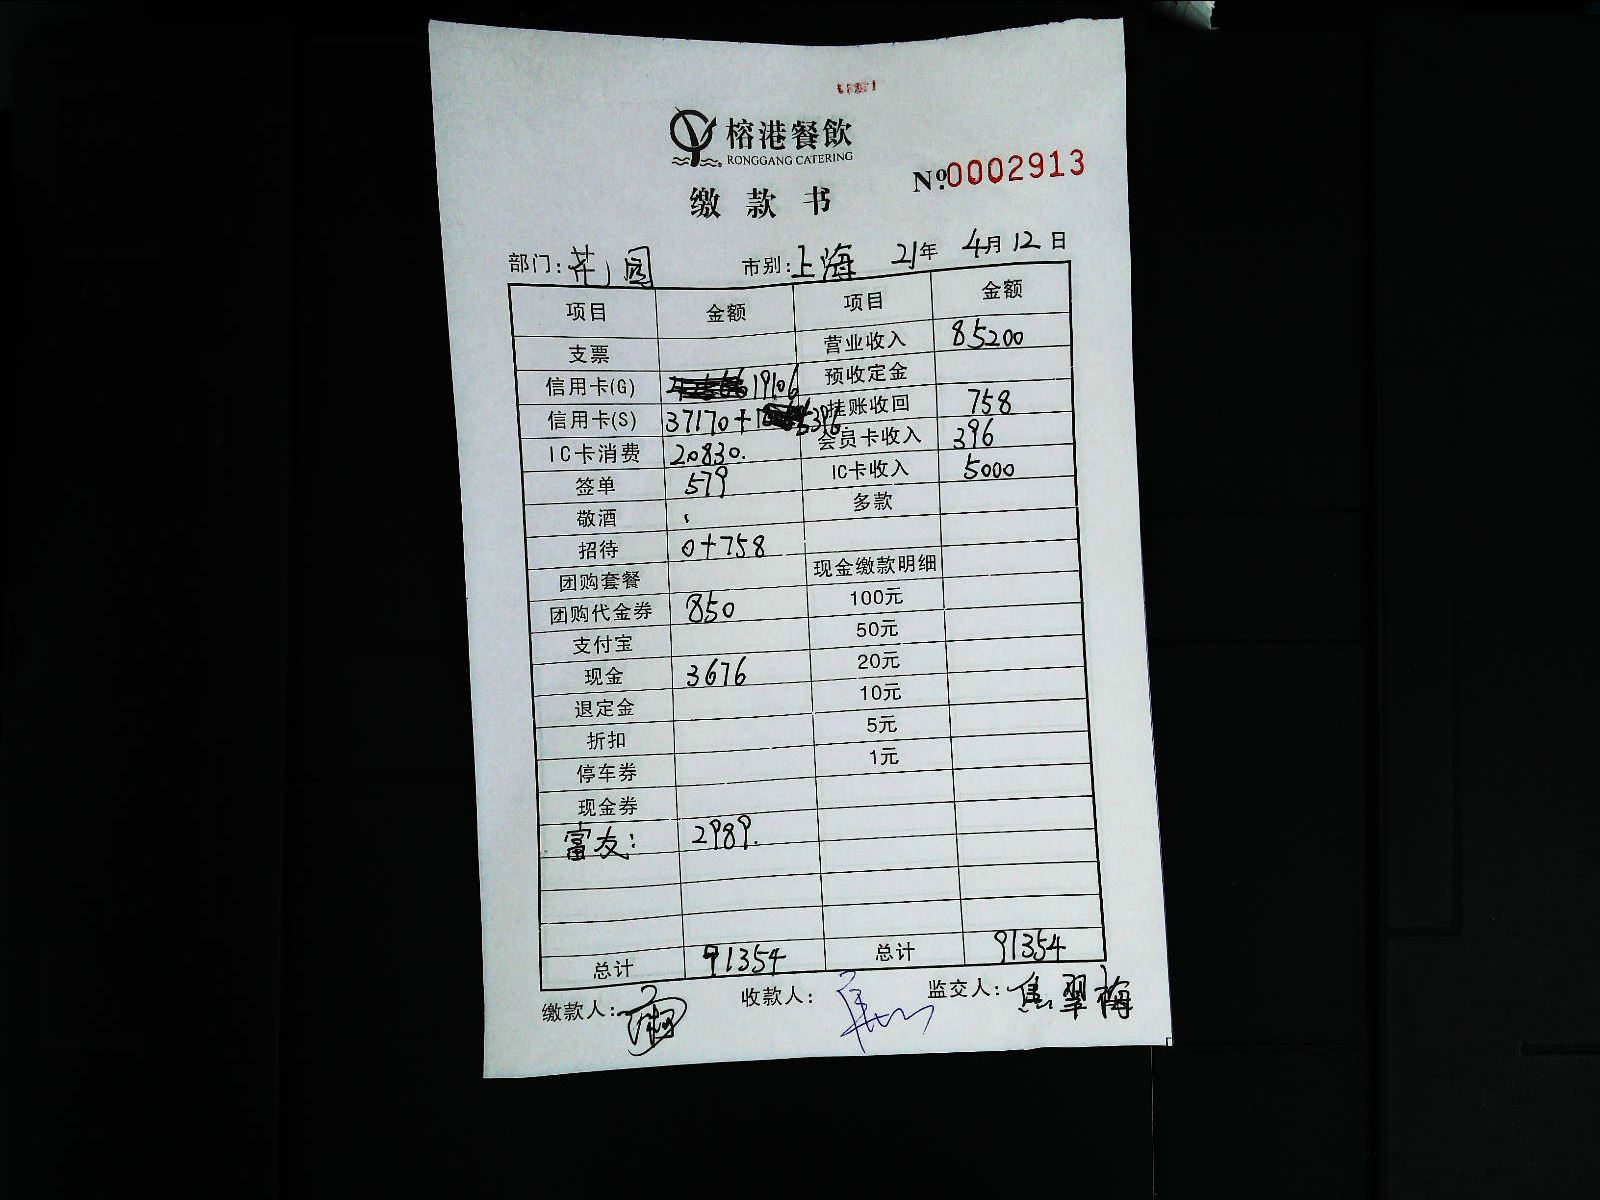 榕港餐飲
RONGGANG CATERING
缴款书
№0002913
部门: 园 市别:上海 21年 4月12日
项目 金额 项目 金额
支票 营业收入 85200
信用卡(G) 19106 预收定金
信用卡(S) 37170+5396 挂账收回 758
IC卡消费 20830. 会员卡收入 396
签单 579 IC卡收入 5000
敬酒 多款
招待 0+758
团购套餐 现金缴款明细
团购代金券 850 100元
支付宝 50元
现金 3676 20元
退定金 10元
折扣 5元
停车券 1元
现金券
富友: 2989.
总计 91354 总计 91354
缴款人: 收款人: 监交人:焦翠梅